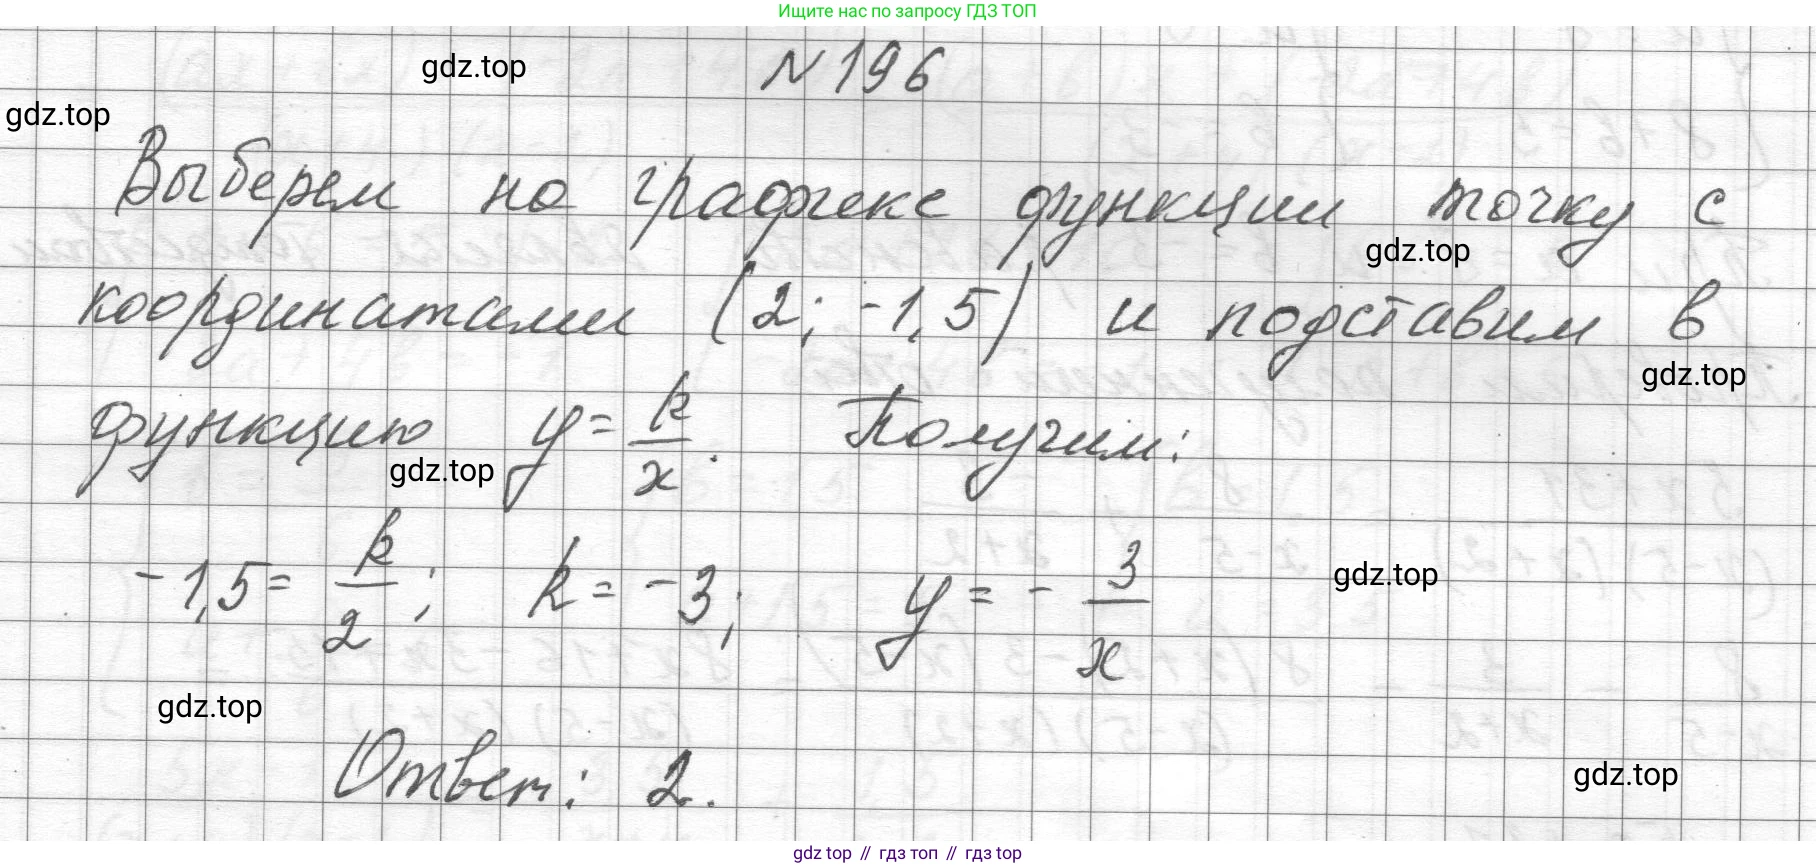 Ищите нас по запросу ГДЗ ТОП
gdz.top
N 196
gdz.top
Выберем на графике функции точку с
gdz.top
координатами (2; -1,5) и подставим в
gdz.top
функцию y = k/x. Получим:
gdz.top
-1,5 = k/2; k = -3; y = - 3/x
gdz.top
gdz.top
Ответ: 2.
gdz.top
gdz.top // гдз топ // гдз top